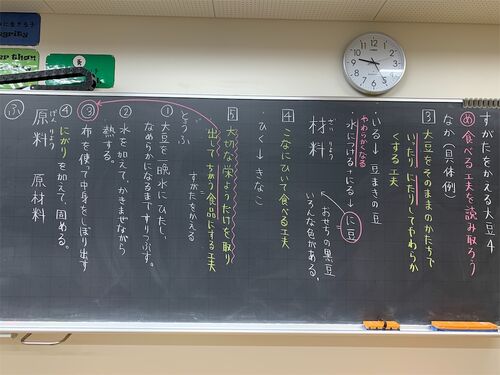 すがたをかえる大豆 4
め 食べる工夫を読み取ろう
なか(具体例)
3 大豆をそのままのかたちで
いったり、にたりしてやわらか
くする工夫
いる→豆まきの豆
やわらかくなる
・水につける→にる→に豆
材料
ざいりょう
おせちの黒豆
いろんな色がある。
4 こなにひいて食べる工夫
・ひく→きなこ
5 大切な栄ようだけを取り
出してちがう食品にする工夫
とうふ
すがたをかえる
① 大豆を一晩水にひたし、
なめらかになるまですりつぶす。
② 水を加えて、かきまぜながら
熱する。
③ 布を使って中身をしぼり出す
④ にがりを加えて、固める。
げんりょう
原料 原材料
ふ